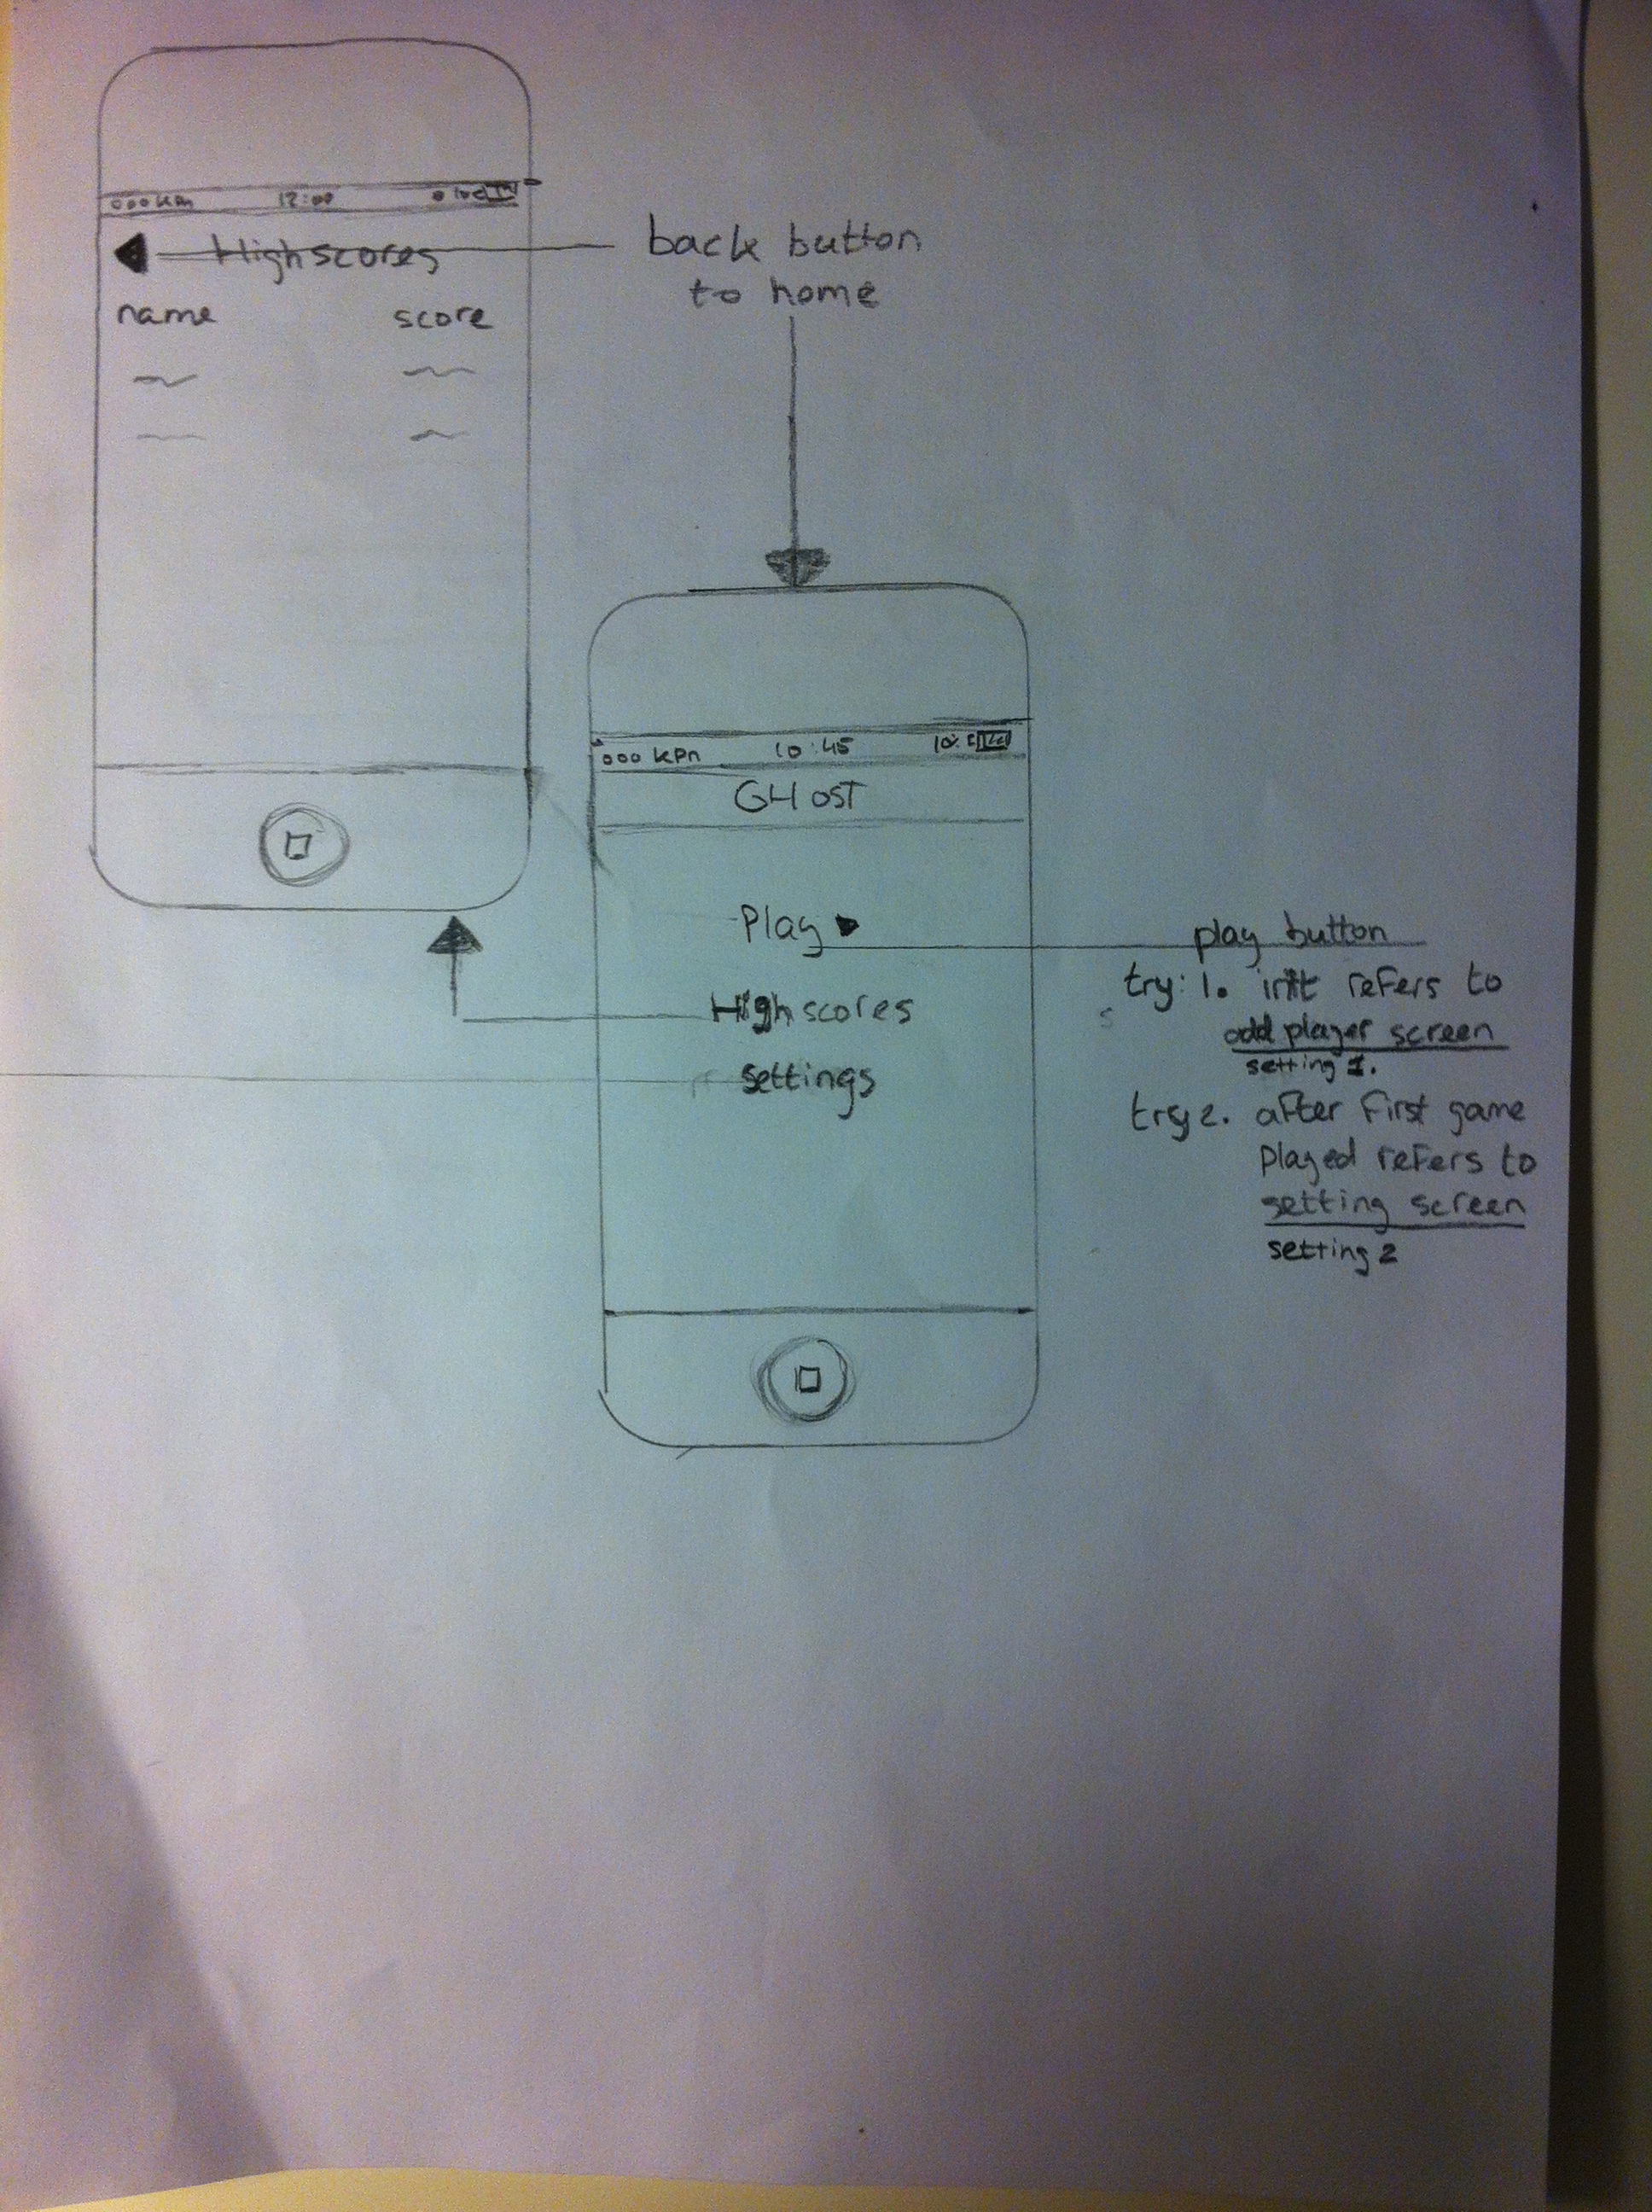 000 kpn 12:00
Highscores
name score
back button
to home
000 kpn 10:45
GHOST
Play
Highscores
settings
play button
try: 1. init refers to
add player screen
setting 1.
try 2. after first game
played refers to
setting screen
setting 2